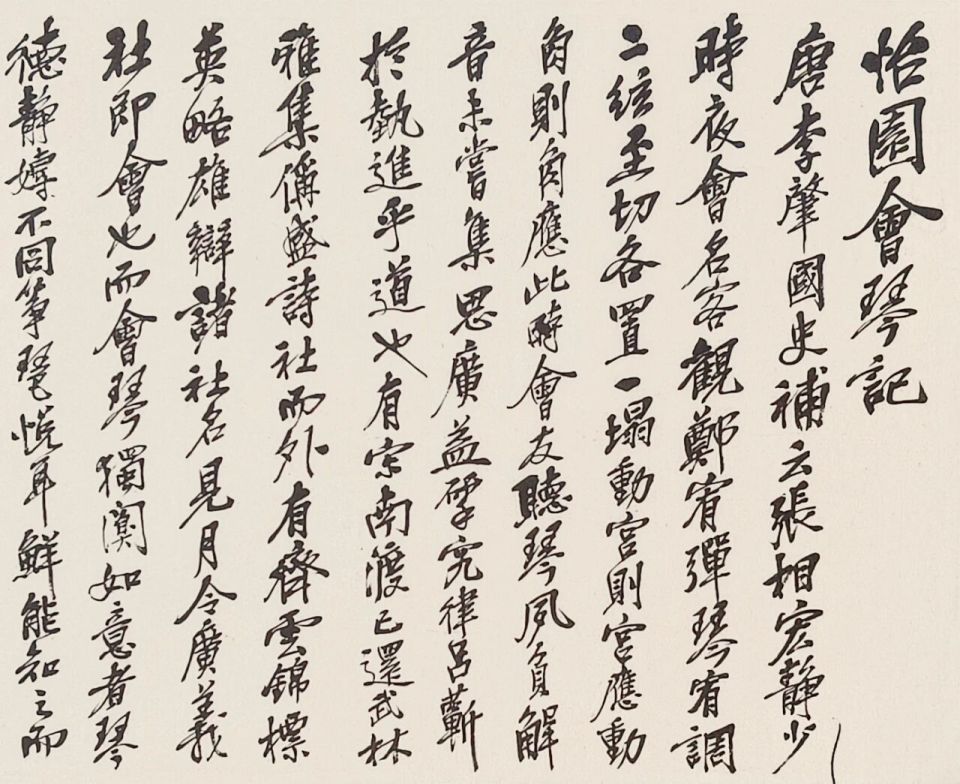 怡園會琴記
唐李肇國史補云張相宏靜少
時夜會名客觀鄭宥彈琴宥調
二絃至切各置一榻動宮則宮應動
角則角應此時會友聽琴夙負解
音未嘗集思廣益研究律呂蘄
於執進乎道也有宋南渡已還武林
雅集偁盛詩社而外有齊雲錦標
英略雄辯諸社名見月令廣義
社即會也而會琴獨闃如意者琴
德靜嫥不同箏琶悅耳鮮能知之而